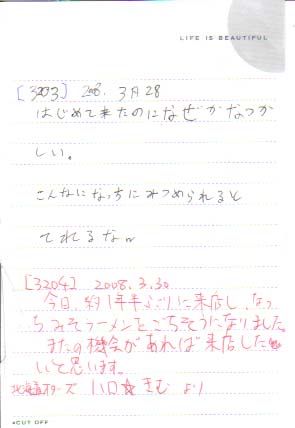 LIFE IS BEAUTIFUL
[3203] 2008. 3月28
はじめて来たのになぜかなつか
しい。
こんなになっちにみつめられると
てれるなw
[3204] 2008.3.30
今日、約1年半ぶりに来店し、なっ
ちみそラーメンをごちそうになりました。
またの機会があれば来店した
いと思います。
北海道 ハロ☆きむ より
CUT OFF